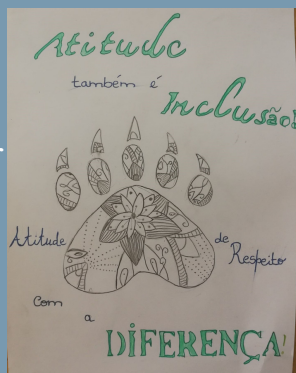 Atitude
também é
Inclusão!
Atitude de
Respeito
com
a
DIFERENÇA!